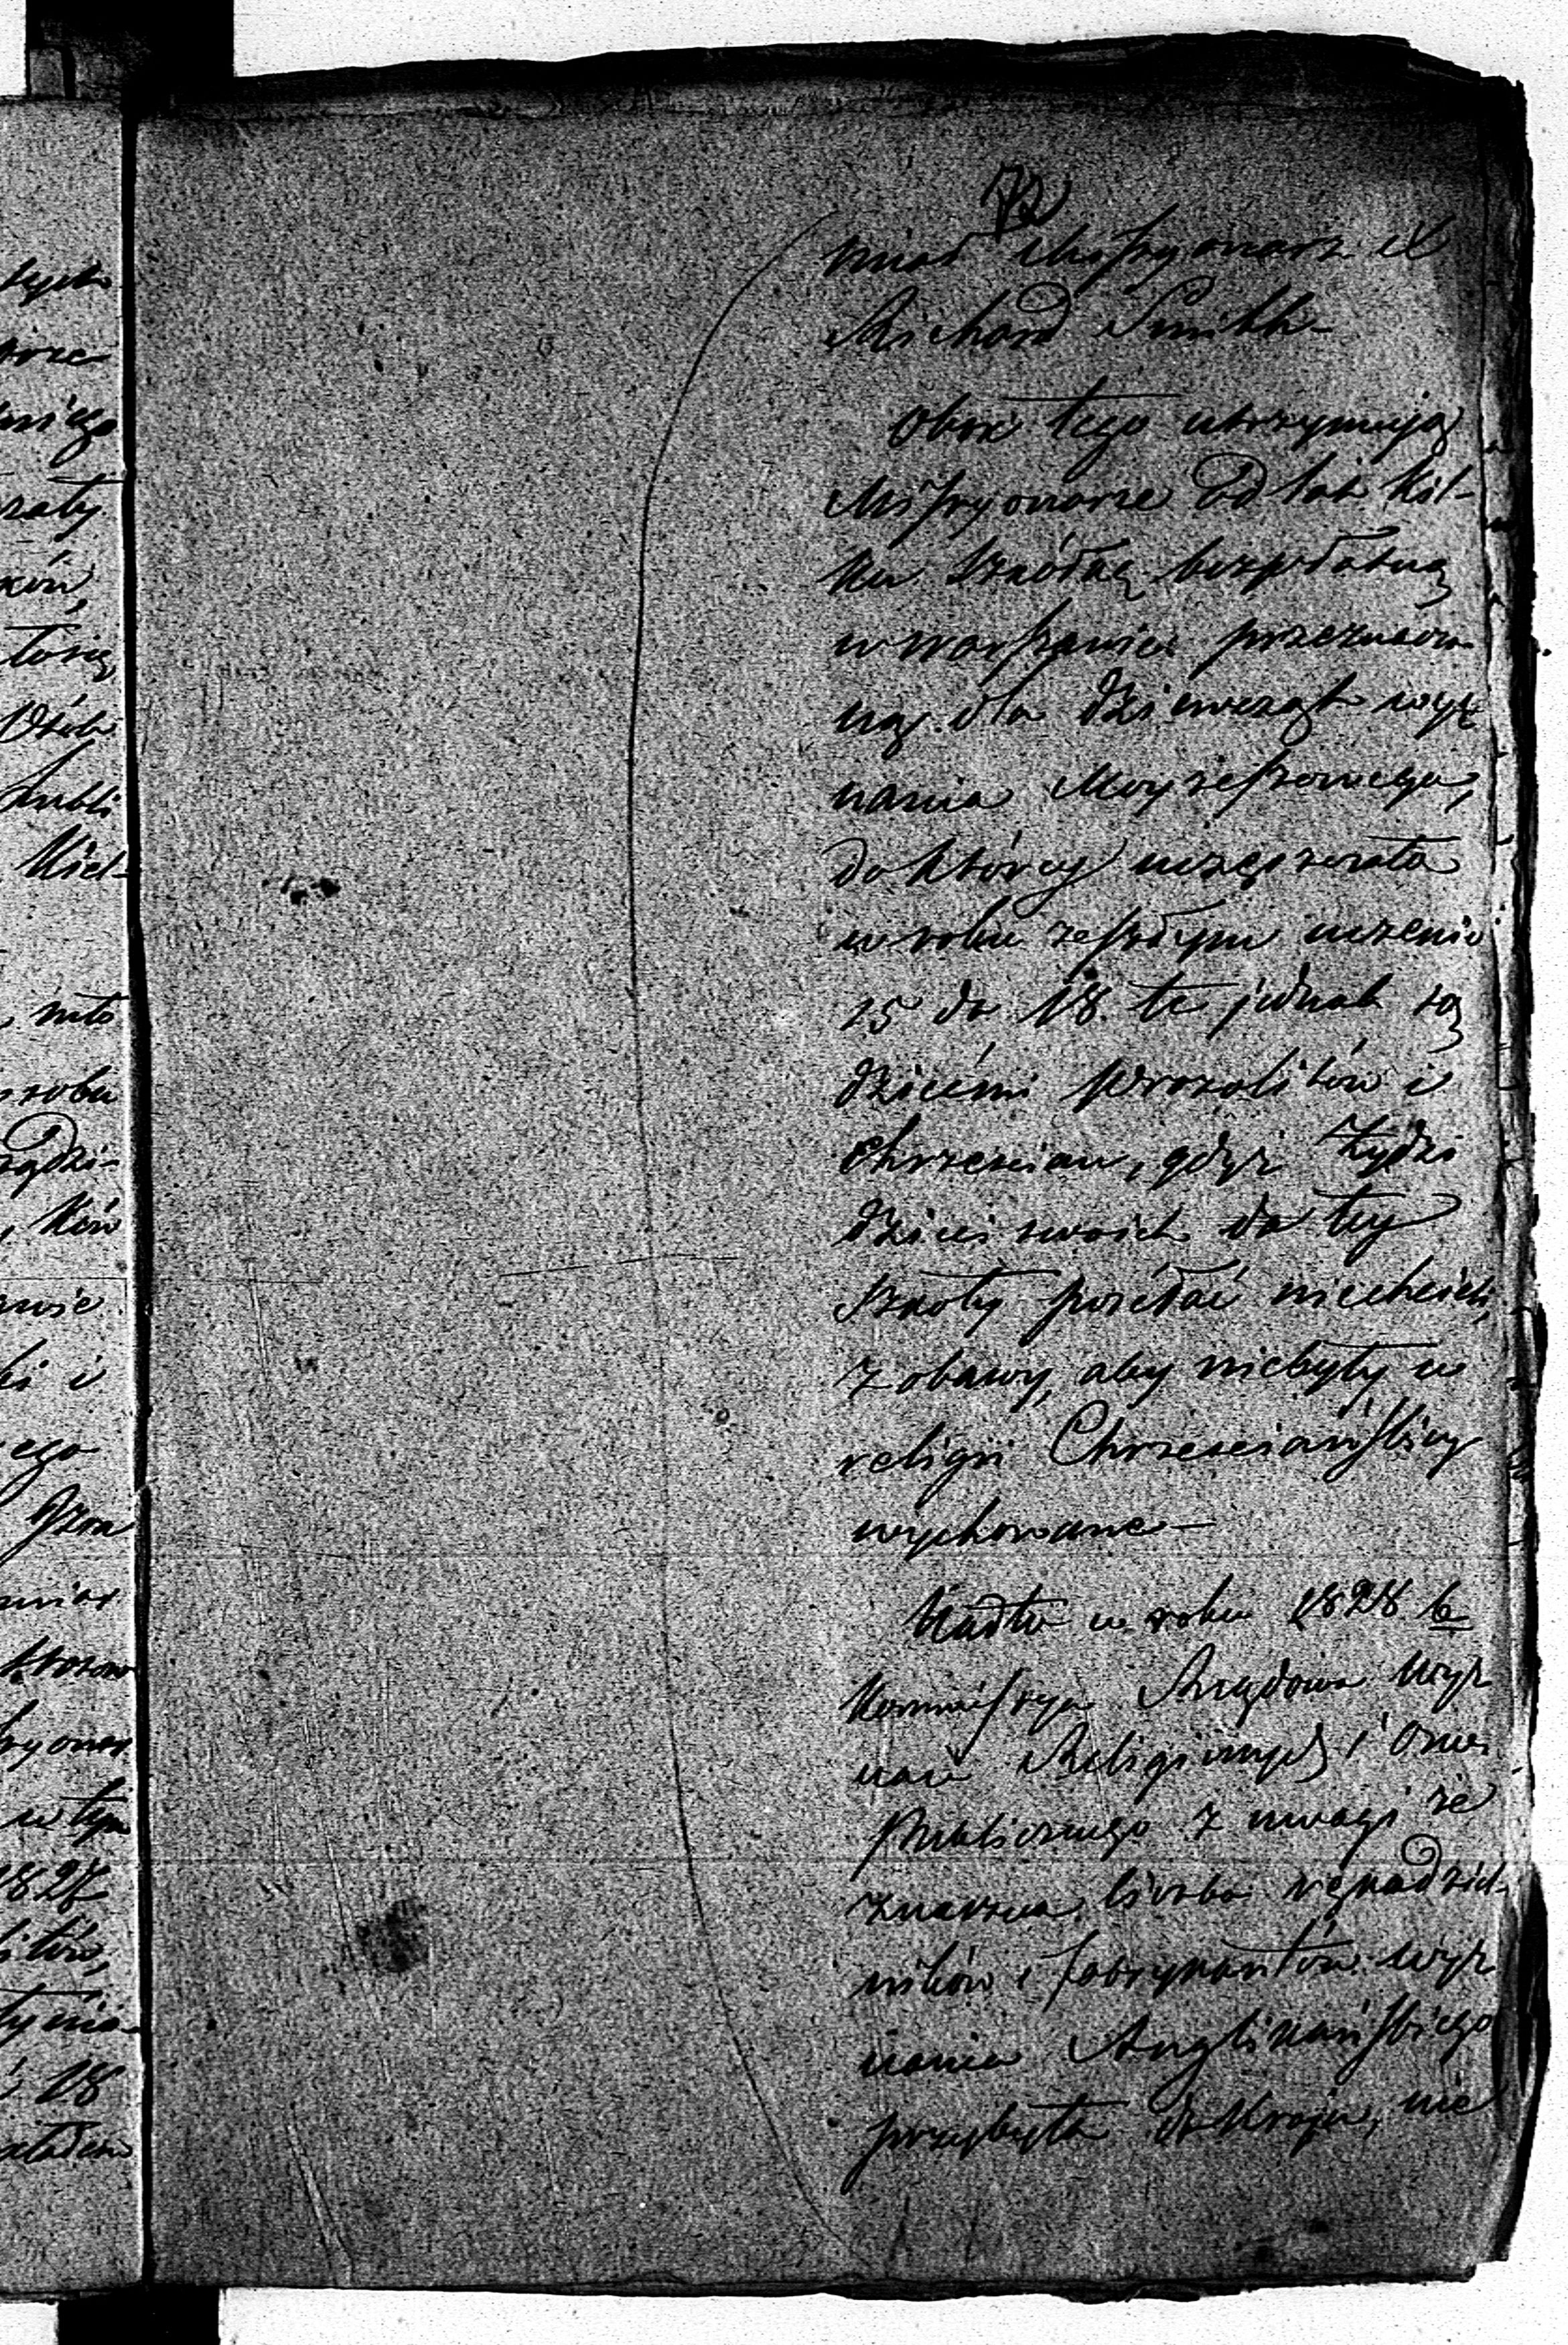 72
miał Missyonarz X
Richard Smith –
Obok tego utrzymują
Missyonarze od lat kil-
ku szkółkę bezpłatną
w Warszawie przeznaczo-
ną dla dziewcząt wyz-
nania Moyżeszowego,
do którey uczęszczało
w roku zeszłym uczenic
15 do 18. te jednak są
dziećmi Prozelitów i
Chrześcian, gdyż Żydzi
dzieci swoich do tey
szkoły posełać niechcieli,
z obawy, aby niebyły w
religii Chrześciańskiey
wychowane –
Nadto w roku 1828
Kommissya Rządowa Wyz
nań Religiinych i Oświe
Publicznego z uwagi że
znaczna liczba rękodziel-
ników i fabrykantów wyz
nania Anglikańskiego
przybyła do Kraju, nie
tych
szaty
ków,
torię
Osób
Lubli
Kiel-
roku
ków
nie
ki i
ego
Izra
w tym
1827
litów,
18